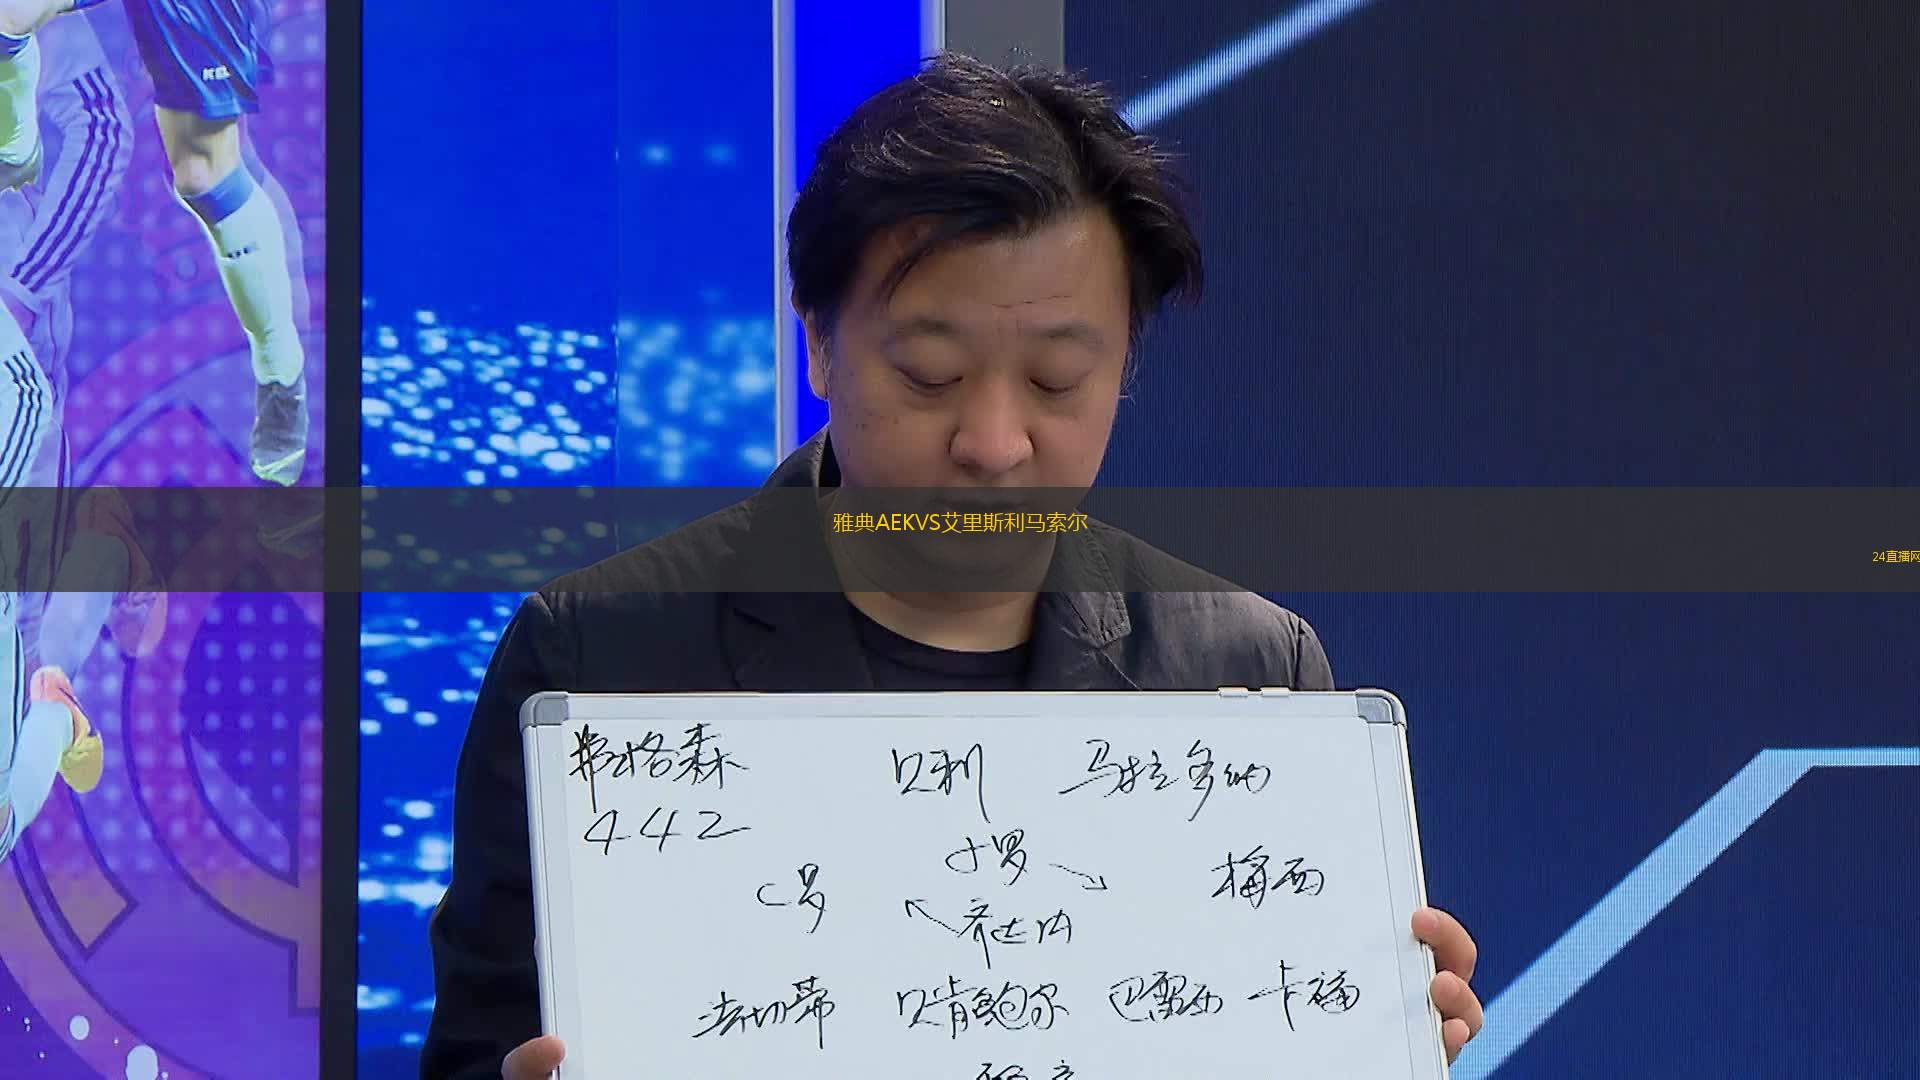 KEL
雅典AEKVS艾里斯利马索尔
24直播网
弗格森 贝利 马拉多纳
442
小罗
C罗 梅西
齐达内
法切蒂 贝肯鲍尔 巴雷西 卡福